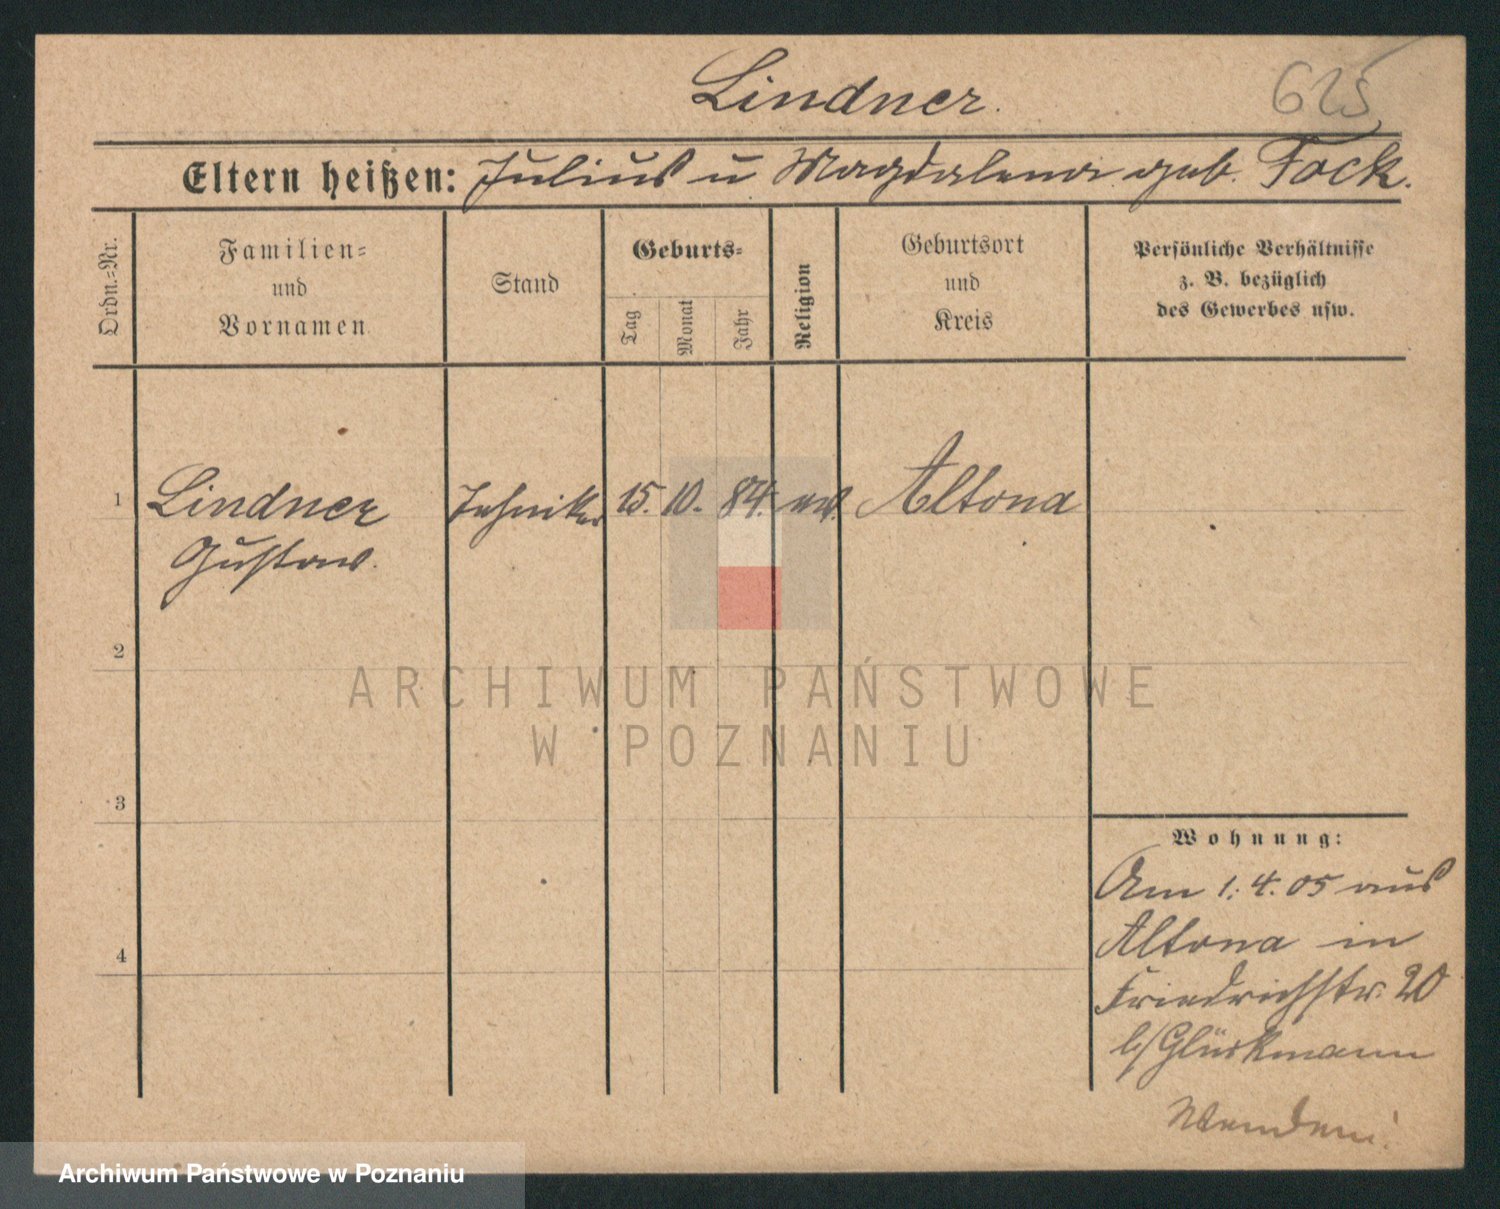 Lindner.
625
Eltern heißen: Julius u Magdalena geb. Fock.
Ordn.=Nr.
Familien=
und
Vornamen
Stand
Geburts=
Tag
Monat
Jahr
Religion
Geburtsort
und
Kreis
Persönliche Verhältnisse
z. B. bezüglich
des Gewerbes usw.
1 Lindner Tehniker 15. 10. 84. ev. Altona
Gustav.
2
3
4
ARCHIWUM PAŃSTWOWE
W POZNANIU
Wohnung:
Am 1. 4. 05 aus
Altona in
Friedrichstr. 20
b/Glückmann
Wenden!
Archiwum Państwowe w Poznaniu